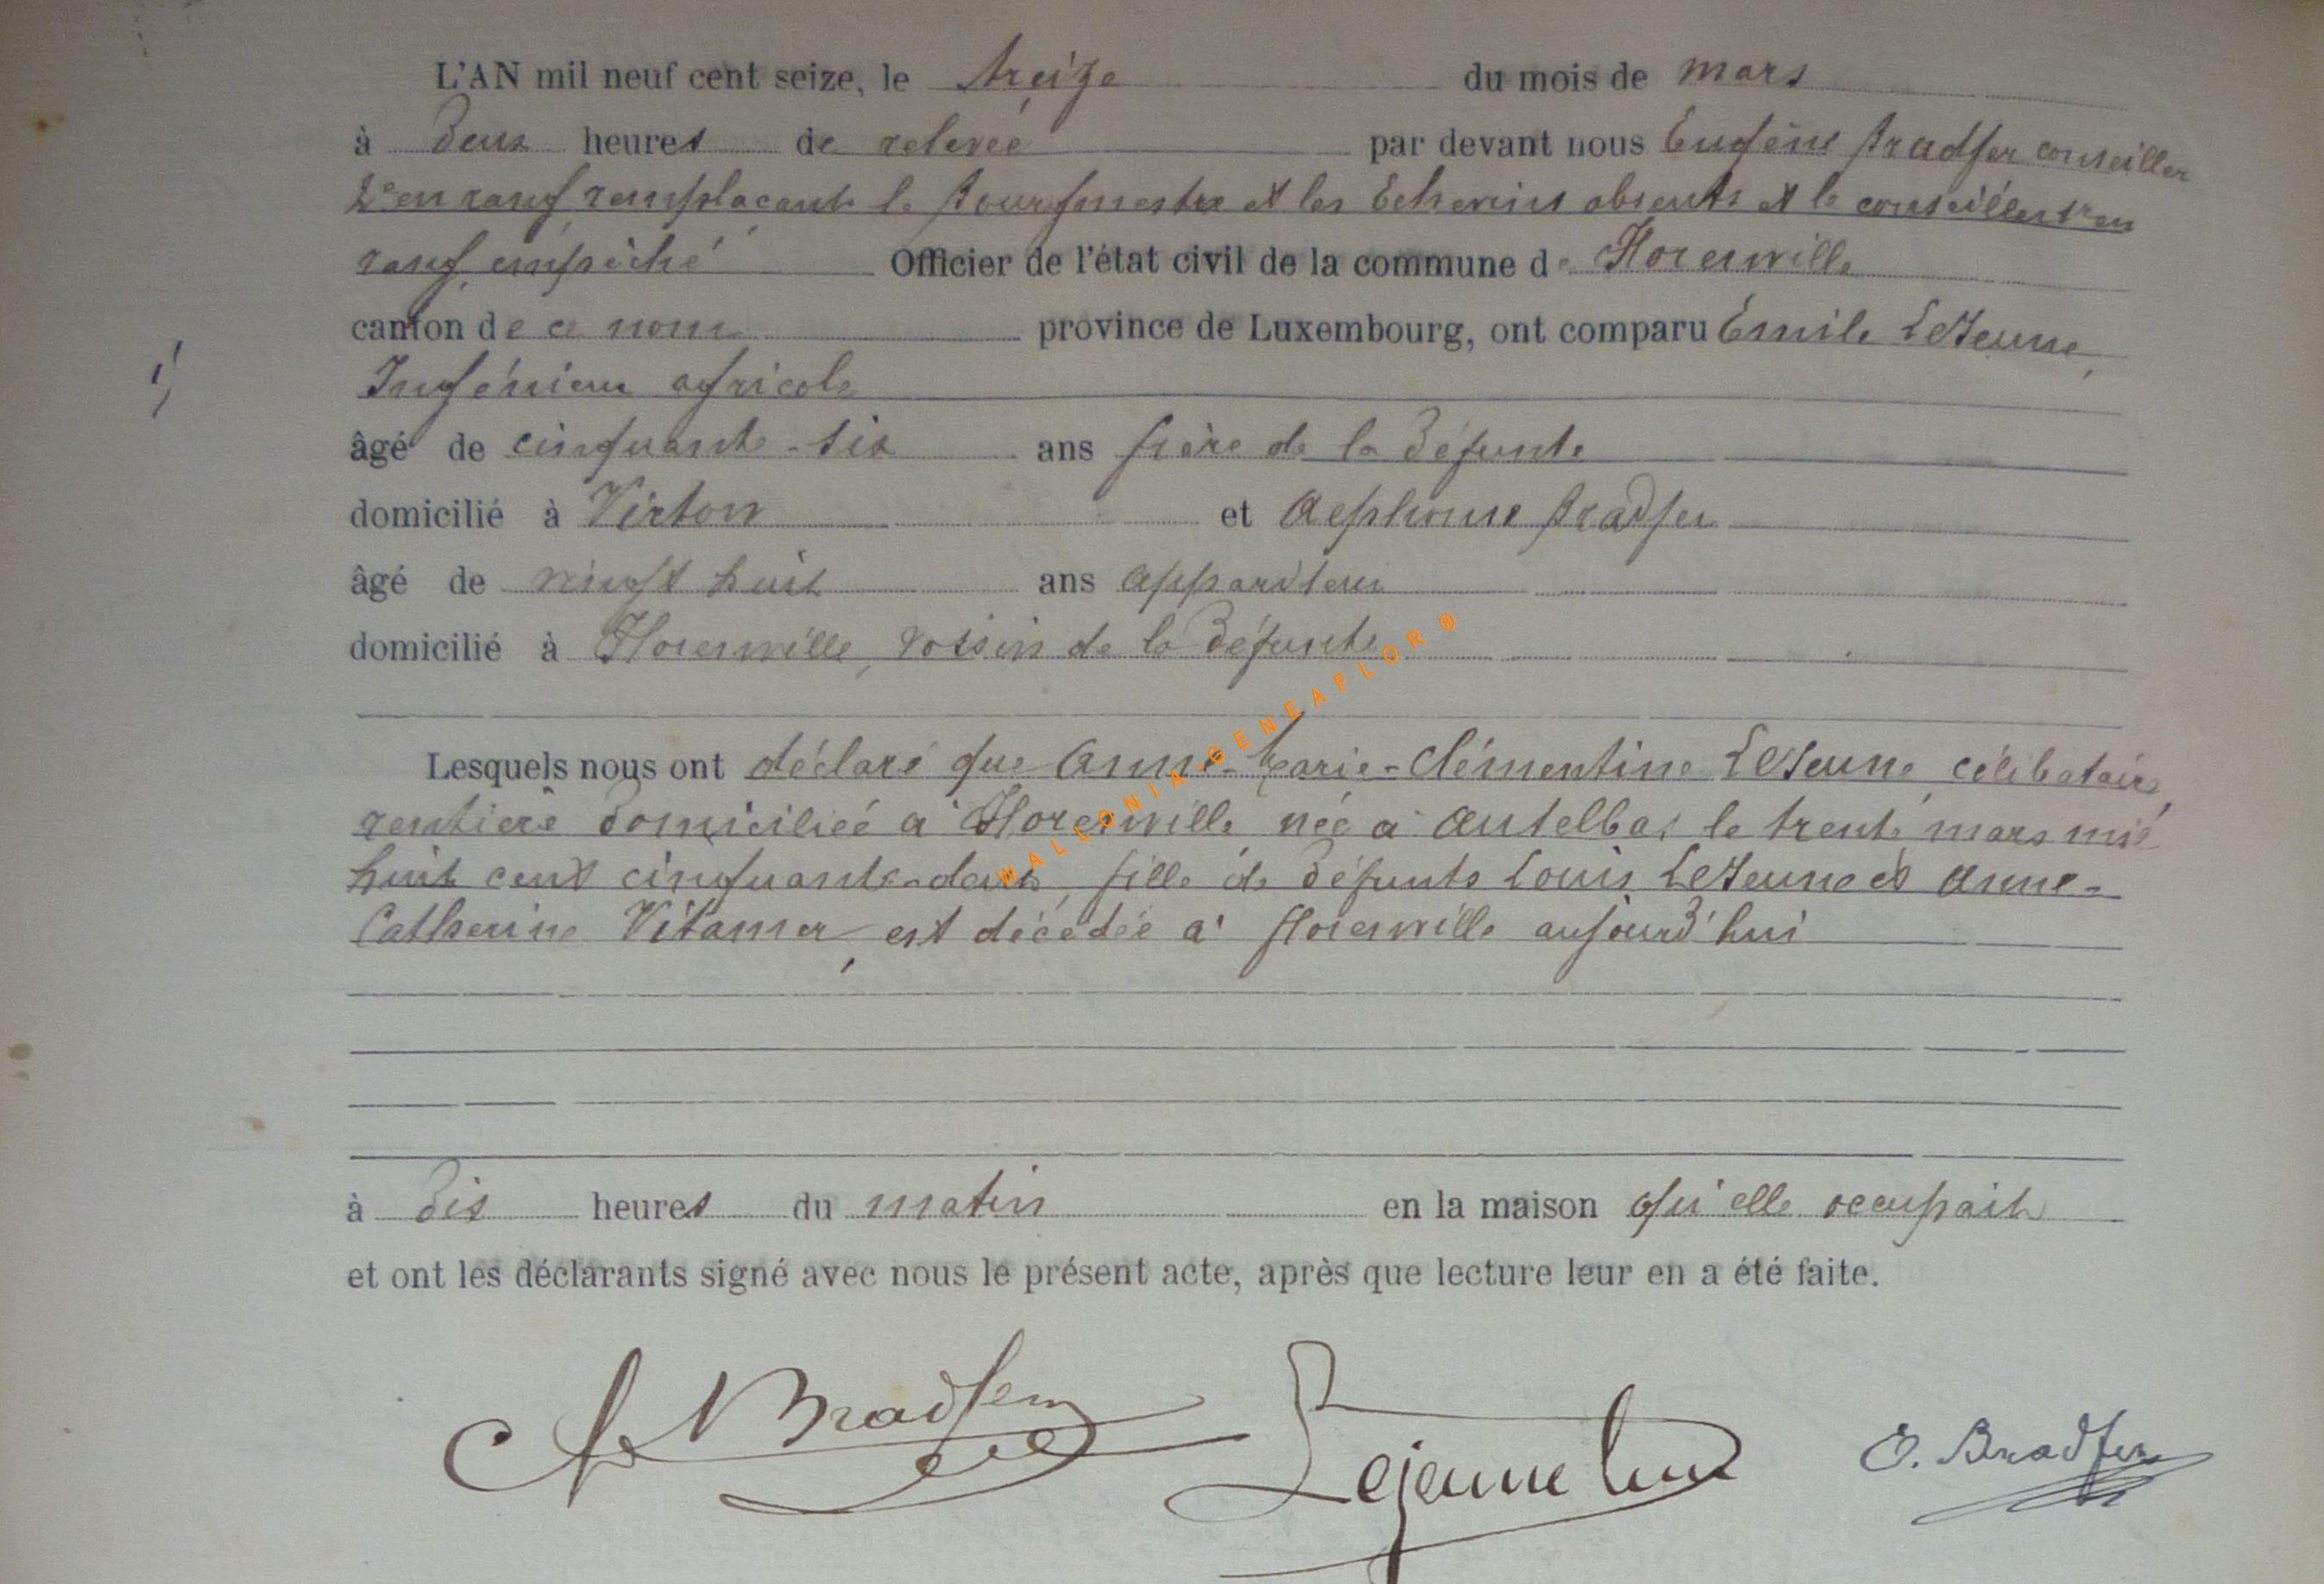 L'AN mil neuf cent seize, le treize du mois de mars
à deux heures de relevée par devant nous Eugène Bradfer conseiller
2e en rang remplaçant le Bourgmestre et les Echevins absents et le conseiller 1er en
rang empêché Officier de l'état civil de la commune de Florenville
canton de ce nom province de Luxembourg, ont comparu Emile LeJeune,
Ingénieur agricole
âgé de cinquante-six ans frère de la défunte
domicilié à Virton et Alphonse Bradfer
âgé de vingt huit ans appariteur
domicilié à Florenville, voisin de la défunte
Lesquels nous ont déclaré que Anne-Marie-Clémentine LeJeune, célibataire,
rentière domiciliée à Florenville, née à Autelbas le trente mars mil
huit cent cinquante-deux, fille de défunts Louis LeJeune et Anne-
Catherine Vitamer, est décédée à Florenville aujourd'hui
à dix heures du matin en la maison qu'elle occupait
et ont les déclarants signé avec nous le présent acte, après que lecture leur en a été faite.
Bradfer Lejeune E. Bradfer
WALLONIA-GENEAFLOR ®